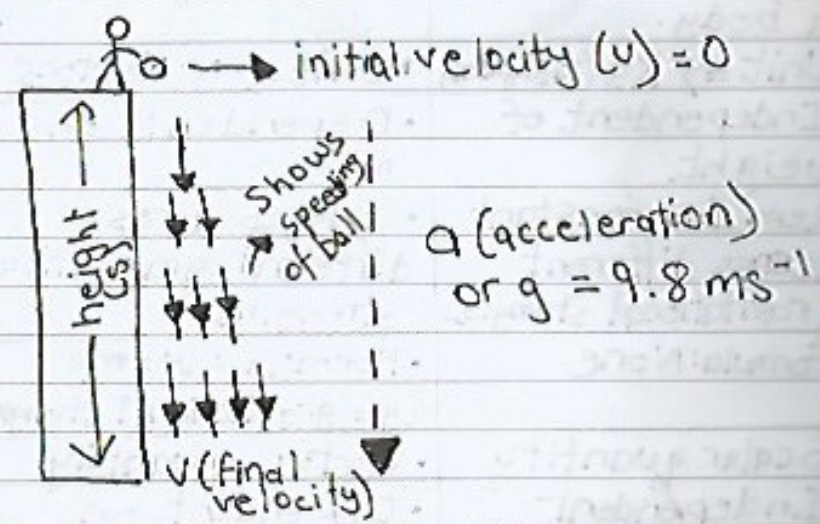 initial velocity (u) = 0
height
(s)
shows
speeding
of ball
a (acceleration)
or g = 9.8 ms⁻¹
v (final
velocity)